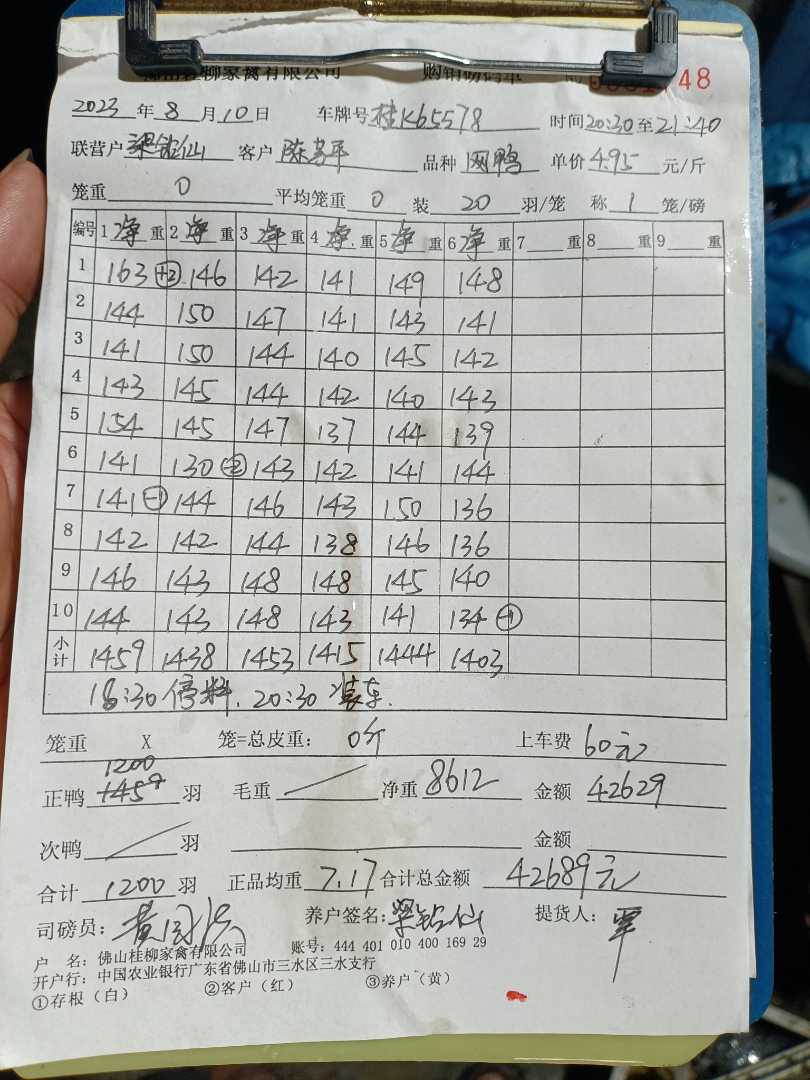 佛山桂柳家禽有限公司 购销磅码单 48
2023 年 8 月 10 日 车牌号 桂K65578 时间 20:30 至 21:40
联营户 梁铭仙 客户 陈 平 品种 网鸭 单价 4.95 元/斤
笼重 0 平均笼重 0 装 20 羽/笼 称 1 笼/磅
编号 1 净 重 2 净 重 3 净 重 4 净 重 5 净 重 6 净 重 7 重 8 重 9 重
1 163 +2 146 142 141 149 148
2 144 150 147 141 143 141
3 141 150 144 140 145 142
4 143 145 144 142 140 143
5 154 145 147 137 144 139
6 141 130 -2 143 142 141 144
7 141 -1 144 146 143 150 136
8 142 142 144 138 146 136
9 146 143 148 148 145 140
10 144 143 148 143 141 134 +1
小计 1459 1438 1453 1415 1444 1403
18:30停料. 20:30装车.
笼重 X 笼=总皮重: 0斤 上车费 60元
1200
正鸭 1459 羽 毛重 净重 8612 金额 42629
次鸭 羽 金额
合计 1200 羽 正品均重 7.17 合计总金额 42689元
司磅员: 黄 养户签名: 梁铭仙 提货人: 覃
户 名: 佛山桂柳家禽有限公司 账号: 444 401 010 400 169 29
开户行: 中国农业银行广东省佛山市三水区三水支行
①存根(白) ②客户(红) ③养户(黄)